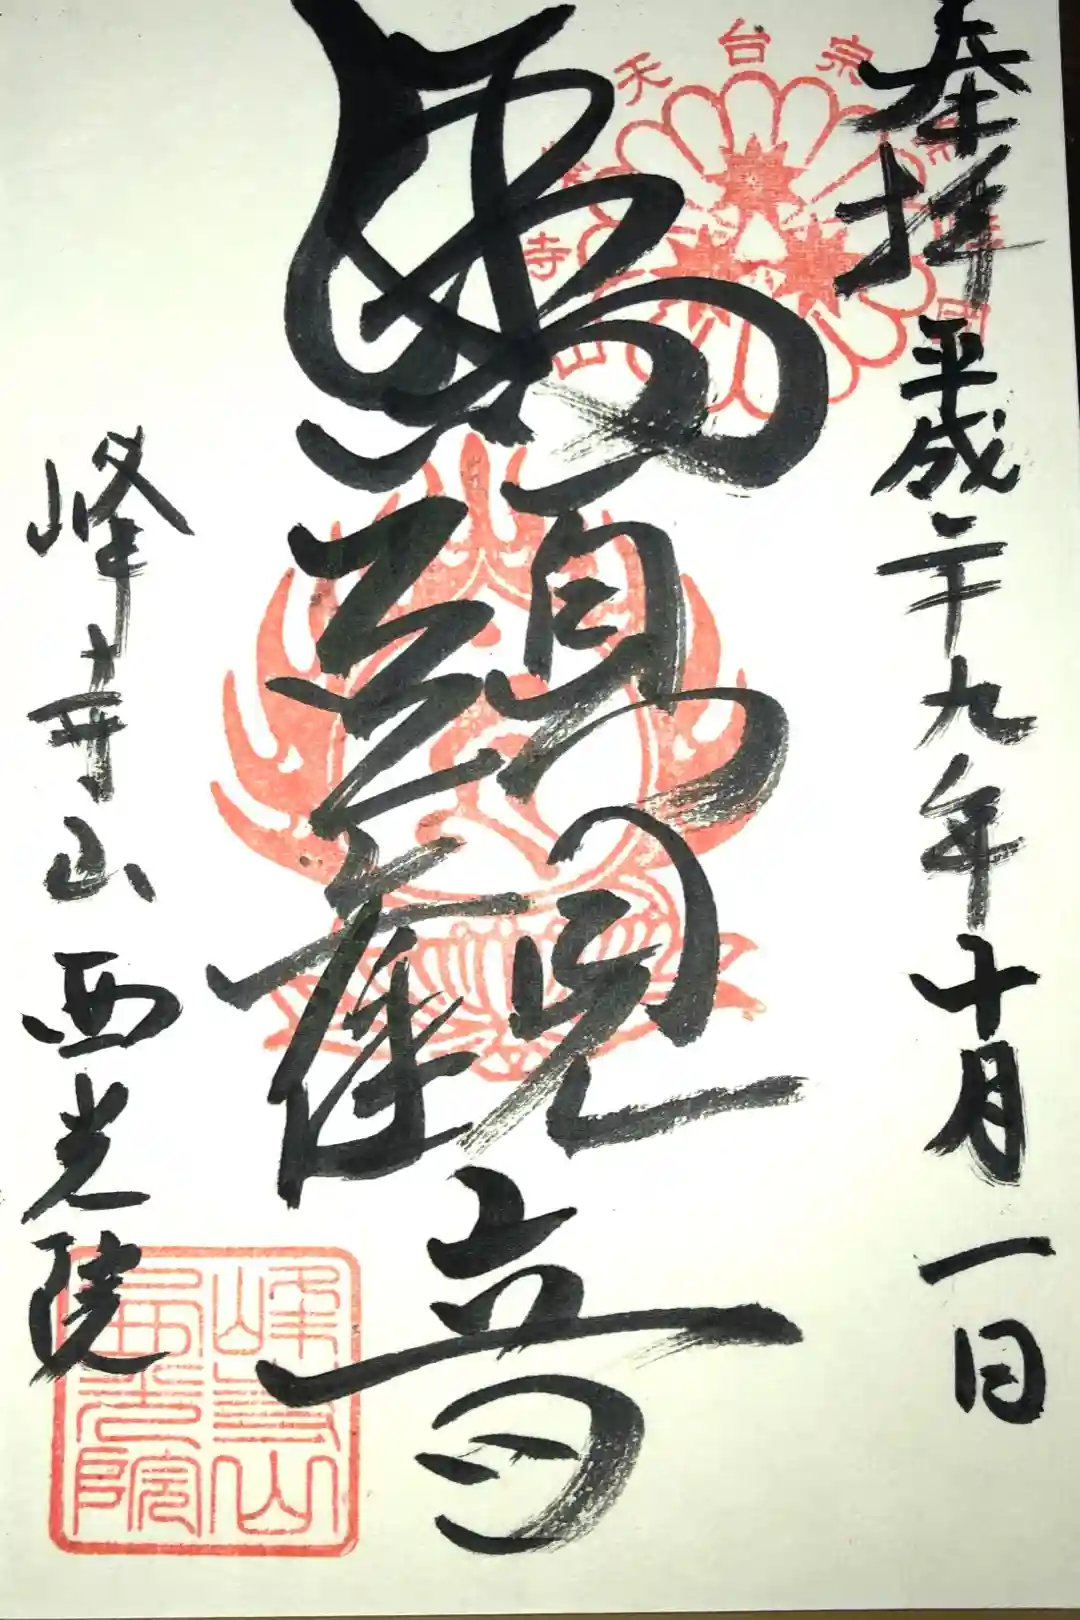 奉拝 平成二十九年十月一日
馬頭觀音
峰寺山 西光院
天台宗
峰寺山
峰寺山
西光院